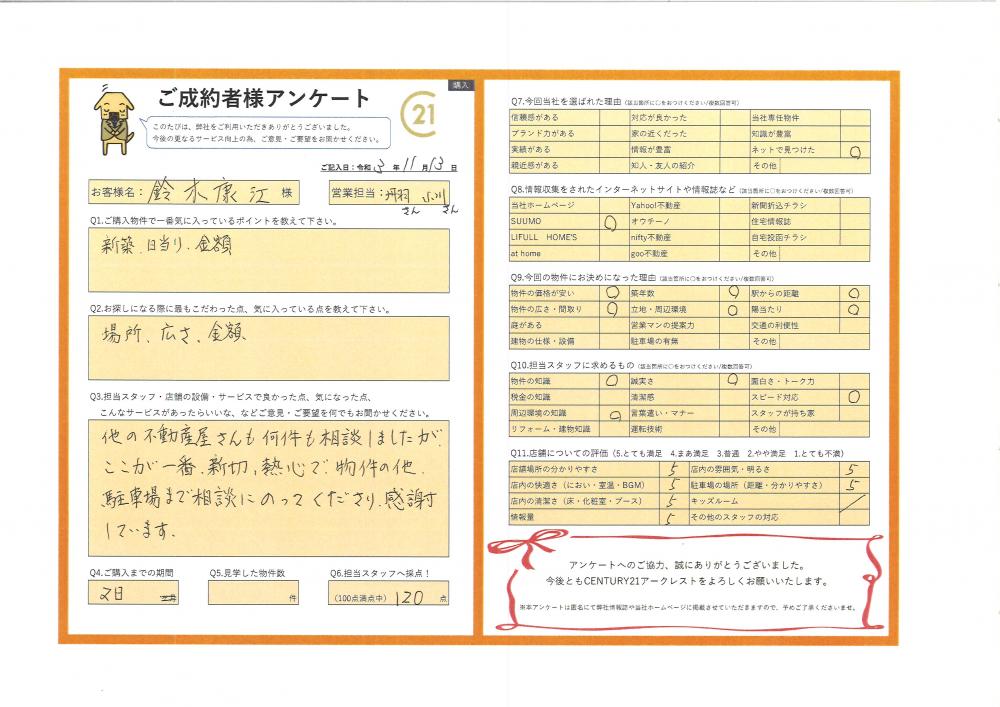 購入
ご成約者様アンケート
21
このたびは、弊社をご利用いただきありがとうございました。
今後の更なるサービス向上の為、ご意見・ご要望をお聞かせください。
ご記入日：令和 3 年 11 月 13 日
お客様名： 鈴木康江 様
営業担当： 丹羽さん 小川さん
Q1.ご購入物件で一番気に入っているポイントを教えて下さい。
新築、日当り、金額
Q2.お探しになる際に最もこだわった点、気に入っている点を教えて下さい。
場所、広さ、金額、
Q3.担当スタッフ・店舗の設備・サービスで良かった点、気になった点、
こんなサービスがあったらいいな、などご意見・ご要望を何でもお聞かせください。
他の不動産屋さんも何件も相談しましたが、
ここが一番、新切、熱心で、物件の他、
駐車場まで相談にのってくださり、感謝
しています。
Q4.ご購入までの期間 Q5.見学した物件数 Q6.担当スタッフへ採点！
2日 件 (100点満点中) 120 点
Q7.今回当社を選ばれた理由（該当箇所に○をおつけください/複数回答可）
信頼感がある 対応が良かった 当社専任物件
ブランド力がある 家の近くだった 知識が豊富
実績がある 情報が豊富 ネットで見つけた ○
親近感がある 知人・友人の紹介 その他
Q8.情報収集をされたインターネットサイトや情報誌など（該当箇所に○をおつけください/複数回答可）
当社ホームページ Yahoo!不動産 新聞折込チラシ
SUUMO ○ オウチーノ 住宅情報誌
LIFULL HOME'S nifty不動産 自宅投函チラシ
at home goo不動産 その他
Q9.今回の物件にお決めになった理由（該当箇所に○をおつけください/複数回答可）
物件の価格が安い ○ 築年数 ○ 駅からの距離 ○
物件の広さ・間取り ○ 立地・周辺環境 ○ 陽当たり ○
庭がある 営業マンの提案力 交通の利便性
建物の仕様・設備 駐車場の有無 その他
Q10.担当スタッフに求めるもの（該当箇所に○をおつけください/複数回答可）
物件の知識 ○ 誠実さ ○ 面白さ・トーク力
税金の知識 清潔感 スピード対応 ○
周辺環境の知識 ○ 言葉遣い・マナー スタッフが持ち家
リフォーム・建物知識 運転技術 その他
Q11.店舗についての評価（5.とても満足 4.まあ満足 3.普通 2.やや満足 1.とても不満）
店舗場所の分かりやすさ 5 店内の雰囲気・明るさ 5
店内の快適さ（におい・室温・BGM） 5 駐車場の場所（距離・分かりやすさ） 5
店内の清潔さ（床・化粧室・ブース） 5 キッズルーム
情報量 5 その他のスタッフの対応
アンケートへのご協力、誠にありがとうございました。
今後ともCENTURY21アークレストをよろしくお願いいたします。
※本アンケートは匿名にて弊社情報誌や当社ホームページに掲載させていただきますので、予めご了承くださいませ。